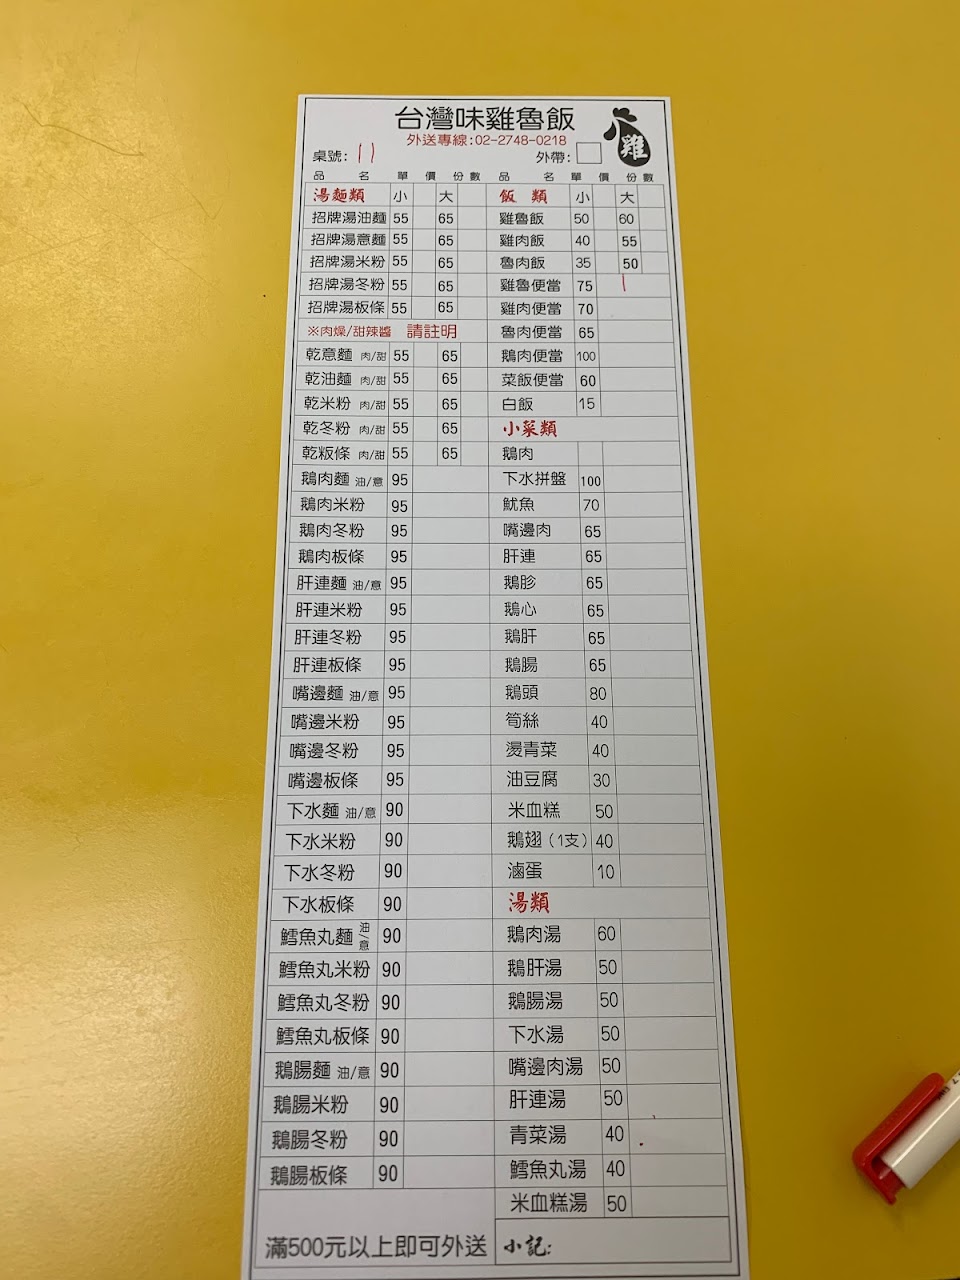 台灣味雞魯飯
雞
外送專線:02-2748-0218
桌號: 11
外帶:
品 名 單 價 份數 品 名 單 價 份數
湯麵類 小 大
招牌湯油麵 55 65
招牌湯意麵 55 65
招牌湯米粉 55 65
招牌湯冬粉 55 65
招牌湯板條 55 65
※肉燥/甜辣醬 請註明
乾意麵 肉/甜 55 65
乾油麵 肉/甜 55 65
乾米粉 肉/甜 55 65
乾冬粉 肉/甜 55 65
乾粄條 肉/甜 55 65
鵝肉麵 油/意 95
鵝肉米粉 95
鵝肉冬粉 95
鵝肉板條 95
肝連麵 油/意 95
肝連米粉 95
肝連冬粉 95
肝連板條 95
嘴邊麵 油/意 95
嘴邊米粉 95
嘴邊冬粉 95
嘴邊板條 95
下水麵 油/意 90
下水米粉 90
下水冬粉 90
下水板條 90
鱈魚丸麵 油/意 90
鱈魚丸米粉 90
鱈魚丸冬粉 90
鱈魚丸板條 90
鵝腸麵 油/意 90
鵝腸米粉 90
鵝腸冬粉 90
鵝腸板條 90
滿500元以上即可外送
飯 類 小 大
雞魯飯 50 60
雞肉飯 40 55
魯肉飯 35 50
雞魯便當 75 1
雞肉便當 70
魯肉便當 65
鵝肉便當 100
菜飯便當 60
白飯 15
小菜類
鵝肉
下水拼盤 100
魷魚 70
嘴邊肉 65
肝連 65
鵝胗 65
鵝心 65
鵝肝 65
鵝腸 65
鵝頭 80
筍絲 40
燙青菜 40
油豆腐 30
米血糕 50
鵝翅(1支) 40
滷蛋 10
湯類
鵝肉湯 60
鵝肝湯 50
鵝腸湯 50
下水湯 50
嘴邊肉湯 50
肝連湯 50
青菜湯 40
鱈魚丸湯 40
米血糕湯 50
小記: